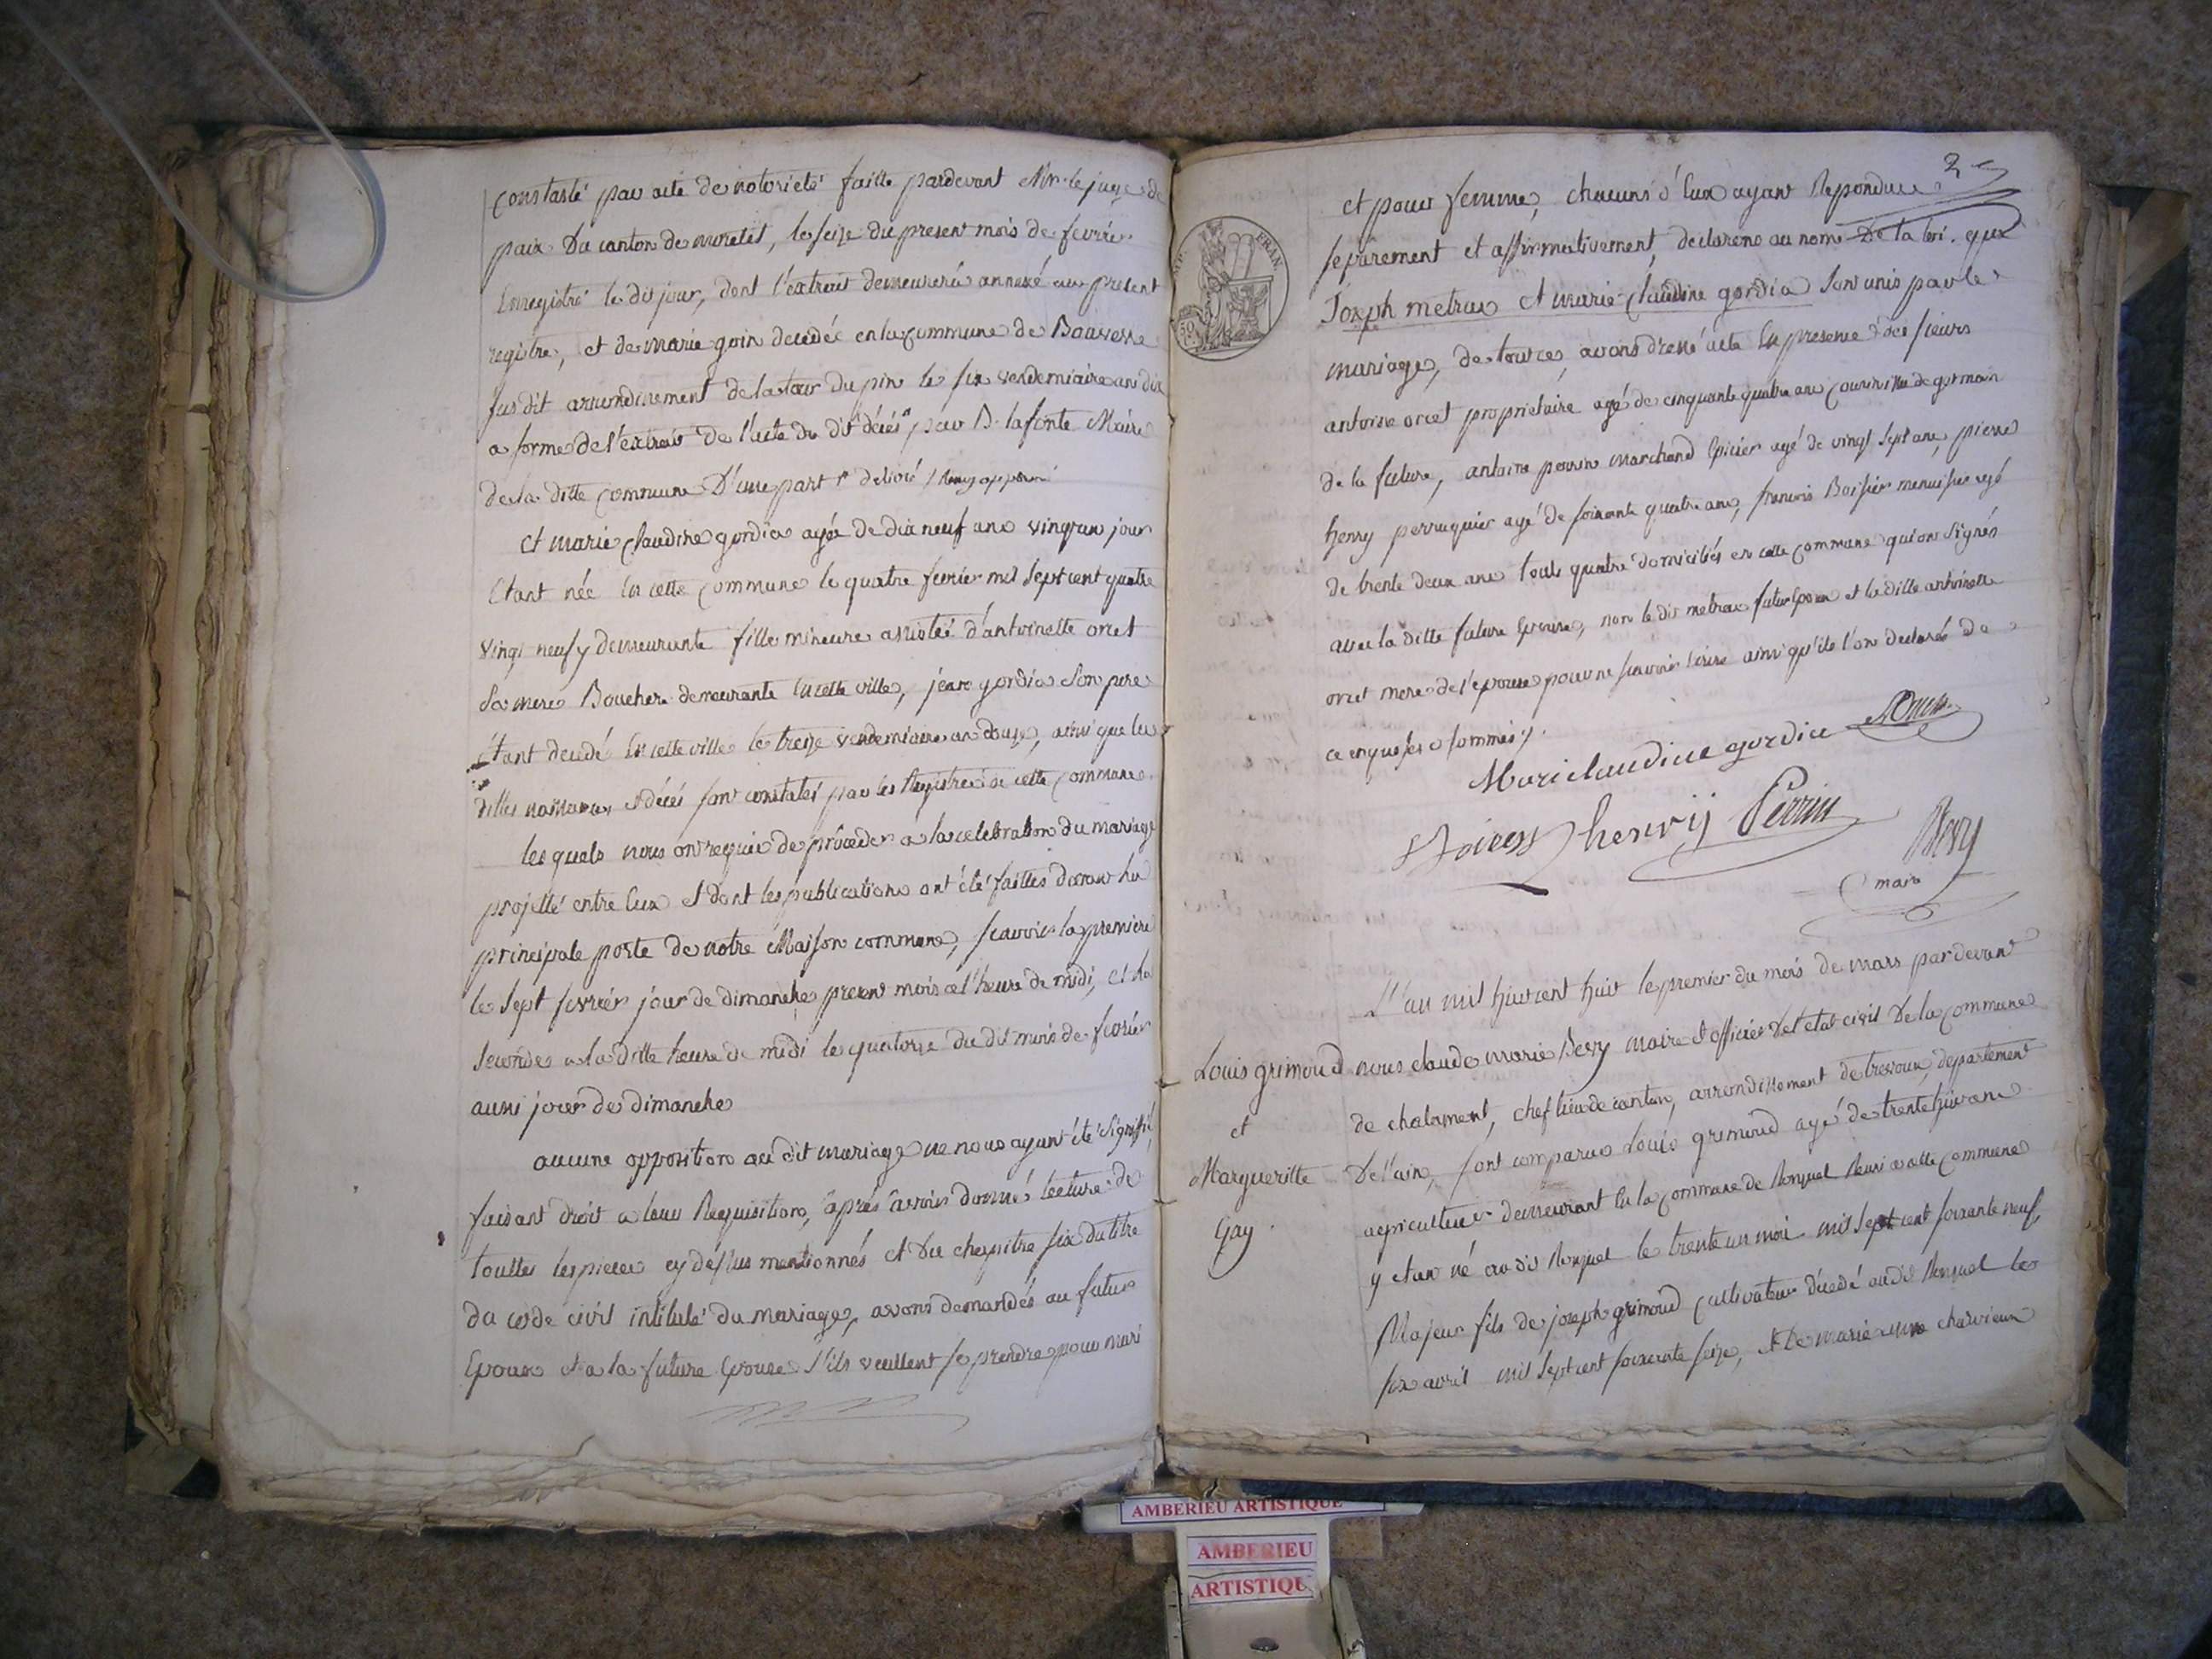 constaté par acte de notorieté faitte pardevant Mr. le juge de
paix Du canton de morestel, le seize du present mois de fevrier
Enregistré le dit jour, dont l'extrait demeurera annexé au present
registre, et de marie goin decedée en la commune de Bouvesse
susdit arrondissement de la tour du pin le six vendemiaire an dix
a forme de l'extrait De l'acte du dit décés par D. lafonte Maire
de la ditte commune D'une part delivré
et marie claudine gordia agée de dix neuf ans vingt un jour
Etant née En cette commune le quatre fevrier mil sept cent quatre
vingt neuf y demeurante fille mineure assistée d'antoinette orcet
Sa mere Bouchere demeurante En cette ville, jean gordia Son pere
étant decedé En cette ville le treize vendemiaire an douze, ainsi que les
dittes naissances et décés sont constatés par les Registres de cette commune
les quels nous ont requis de procéder à la celebration du mariage
projetté entre Eux et dont les publications ont été faittes devant la
principale porte de notre Maison commune, scavoir la premiere
le sept fevrier jour de dimanche present mois a l'heure de midi, et la
seconde a la ditte heure de midi le quatorze du dit mois de fevrier
aussi jour de dimanche
aucune opposition au dit mariage ne nous ayant été signifié,
faisant droit a leur Requisition, après avoir donné lecture de
toutes les pieces cy dessus mentionnés et Du chapitre six du titre
du code civil intitulé du mariage, avons demandés au futur
Epoux et a la future Epouse s'ils veullent se prendre pour mari
2
et pour femme, chacuns d'Eux ayant Repondue
separement et affirmativement, declarons au nom De la loi. que
Joseph metraux et marie claudine gordia Sont unis par le
mariage, de tout ce, avons dressé acte En presence des sieurs
antoine orcet proprietaire agé de cinquante quatre ans cousin issu de germain
de la future, antoine perrin marchand Epicier agé de vingt sept ans, pierre
henry perruquier agé de soixante quatre ans, francois Boissier menuisier agé
de trente deux ans touts quatre domiciliés en cette commune qui ont signés
avec la ditte future Epouse, non le dit metraux futur Epoux et la ditte antoinette
orcet mere de l'epouse pour ne scavoir Ecrire ainsi qu'ils l'ont declarés de
ce enquis et sommés.
Marie claudine gordia
henrij Perrin
maire
L'an mil huit cent huit le premier du mois de mars par devant
Louis grimoud nous claude marie Dery maire et officier de l'etat civil De la commune
et
de chalamont, chef lieu de canton, arrondissement de trevoux, departement
Margueritte De l'ain, sont comparus Louis grimoud agé de trente huit ans
Gay.
agriculteur demeurant En la commune de Ronzuel Reuni a cette commune
y etant né au dit Ronzuel le trente un mai mil sept cent soixante neuf,
Majeur fils de joseph grimoud cultivateur décédé au dit Ronzuel le
six avril mil sept cent soixante seize, et De marie anne charvieux
50
FRAN.
AMBERIEU ARTISTIQUE
AMBERIEU
ARTISTIQU